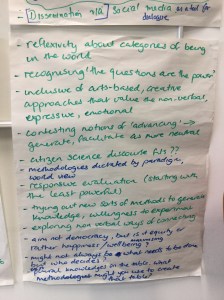 - Dissemination via Social media as a tool for
dialogue
- reflexivity about categories of being
in the world
- recognising the questions are the power
- inclusive of arts-based, creative
approaches that value the non-verbal,
expressive, emotional
- contesting notions of 'advancing' →
generate, facilitate as more neutral
- citizen science discourse fits??
- methodologies dictated by paradigm,
world view
- responsive evaluation (starting with
the least powerful)
- trying out new sorts of methods to generate
knowledge, willingness to experiment
- exploring non verbal ways of connecting
- aim not democracy, but is it equity or
rather happiness/wellbeing?
might not always be what needs to be done
who decides?
knowledges in the table. What
methodologies might you use to create
this table?